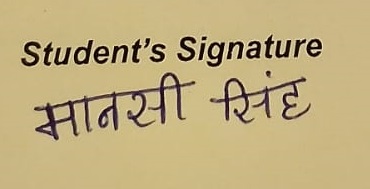 Student's Signature
मानसी सिंह